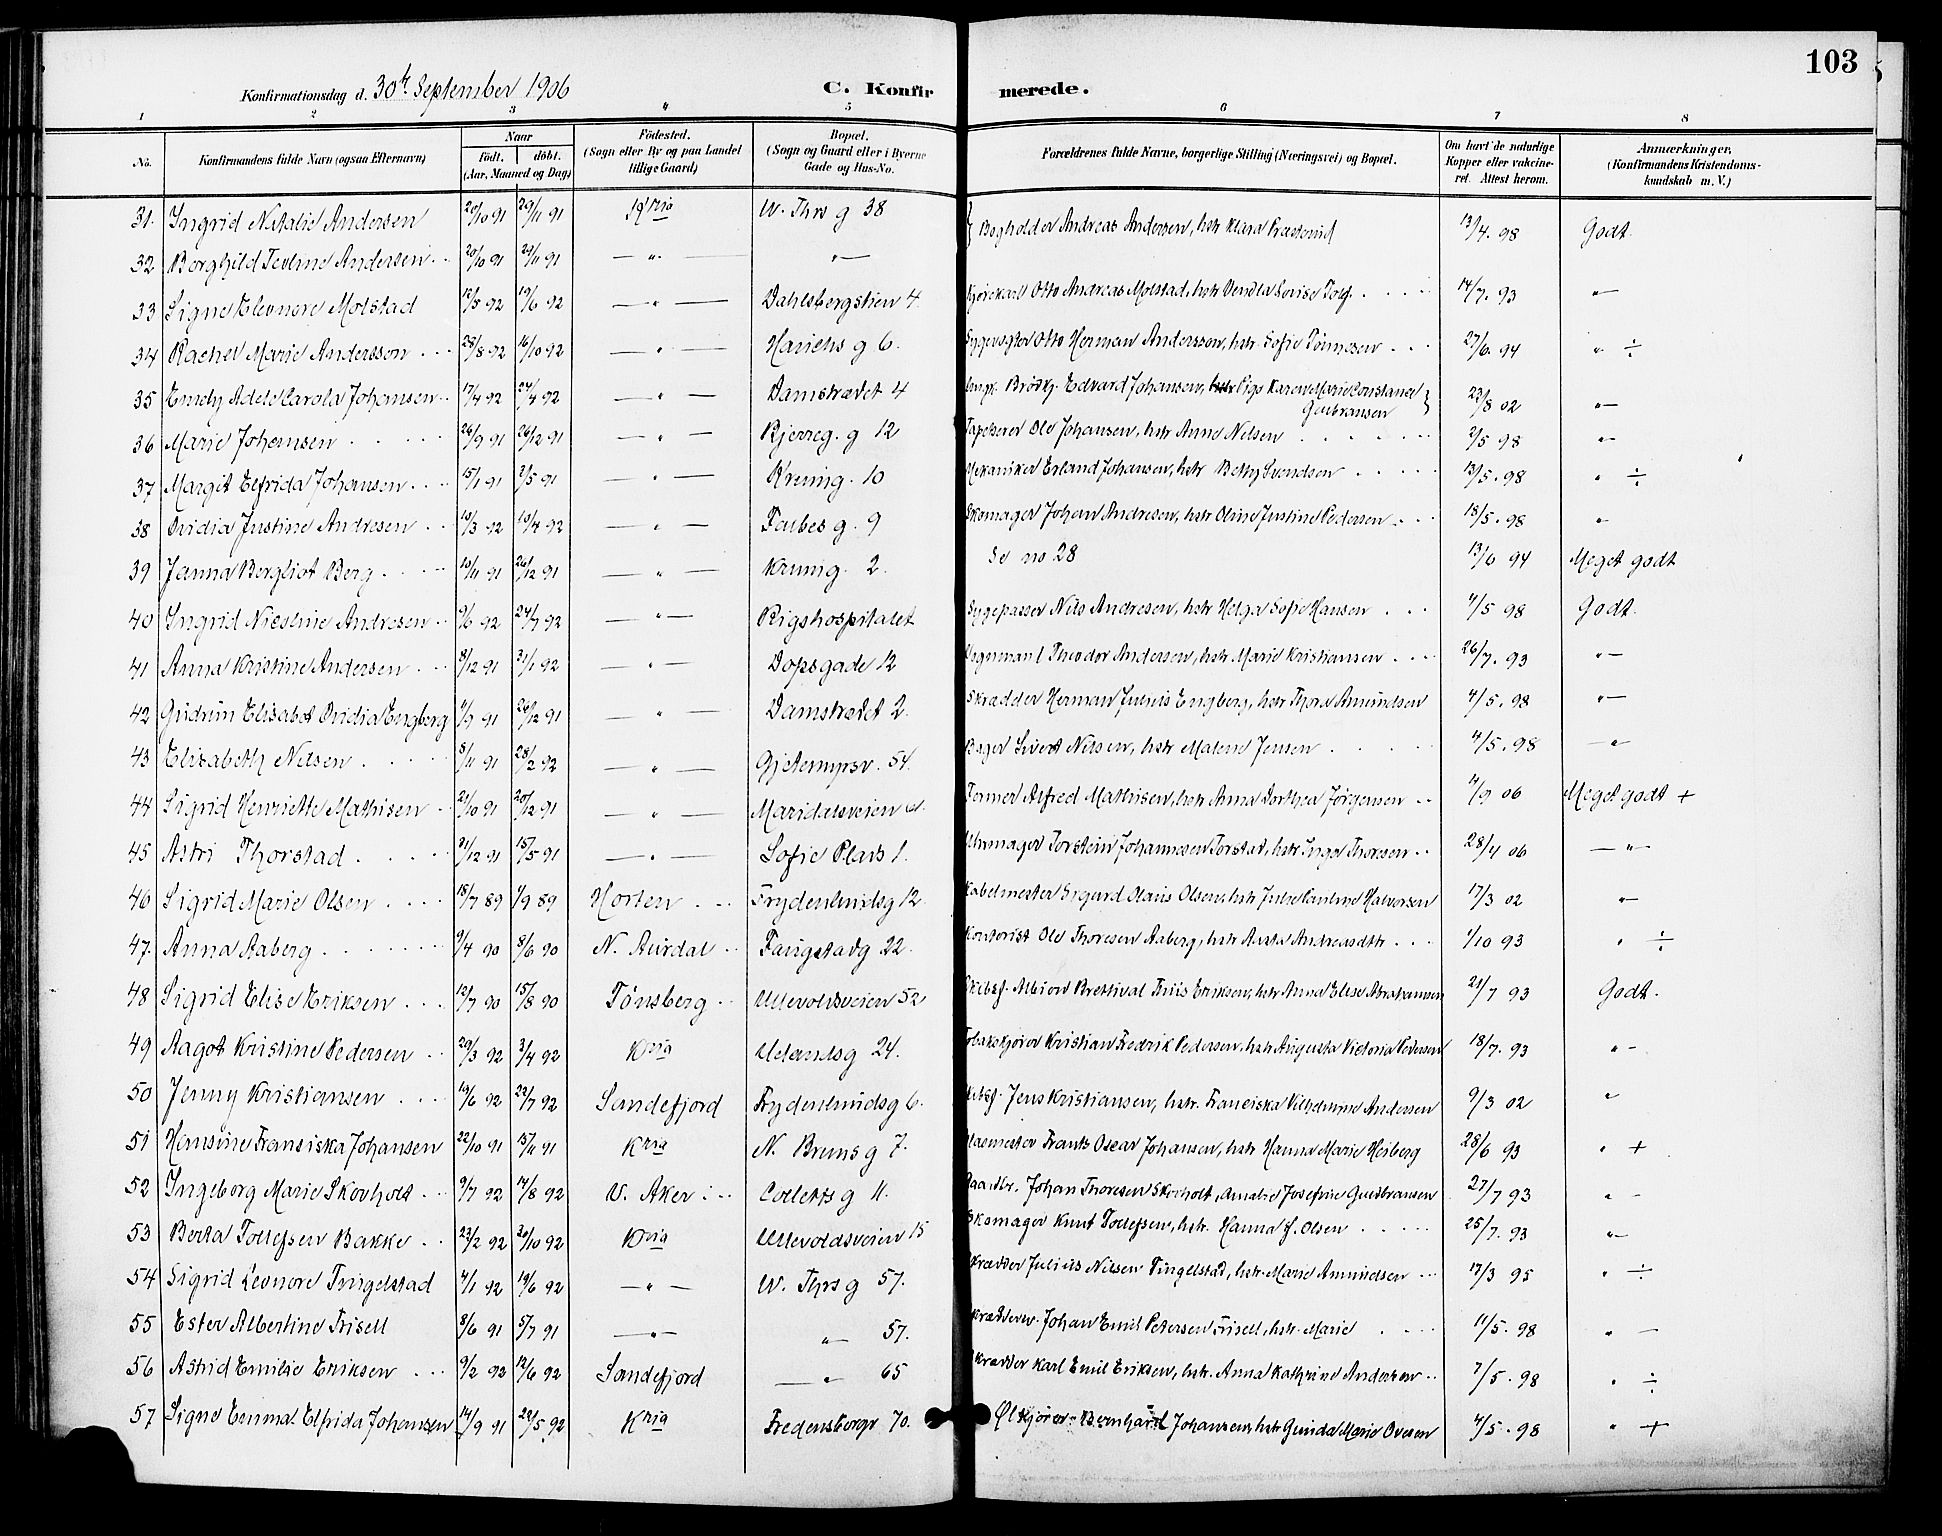 103
Konfirmationsdag d. 30te September 1906 C. Konfirmerede.
1 2 3 4 5 6 7 8
No. Konfirmandens fulde Navn (ogsaa Efternavn) Naar født. døbt. (Aar, Maaned og Dag) Fødested. (Sogn eller By og paa Landet tillige Gaard) Bopæl. (Sogn og Gaard eller i Byerne Gade og Hus-No. Forældrenes fulde Navne, borgerlige Stilling (Næringsvei) og Bopæl. Om havt de naturlige Kopper eller vakcineret. Attest herom. Anmærkninger, (Konfirmandens Kristendomskundskab m. V.)
31. Ingrid Natalie Andersen 20/10 91 29/11 91 Kria W. Thrs g 38 } Bogholder Andreas Andersen, hstr Klara Præsterud 13/4. 98 Godt.
32 Borghild Tevline Andersen 20/10 91 29/11 91 — " — " —
33 Signe Eleonore Molstad 12/5 92 19/6 92 — " — Dahlsbergstien 4 Kjørekarl Otto Andreas Molstad, hstr Vendla Lovise 14/7. 93 " —
34 Rachel Marie Andersson 28/8 92 16/10 92 — " — g 6. Otto Herman Andersson, hstr. Sofie Tønnesen 27/6. 94 " ÷
35 Emdy Adele Carola Johansen 17/4 92 24/4 92 — " — Damstrædet 4 Edvard Johansen, Pige Karen Marie Constance Gulbransen } 23/8 02 " —
36 Marie Johansen 26/9 91 26/12 91 — " — Bjerreg. g 12 Tapetserer Ole Johansen, hstr Anne Nilsen 2/5 98 " —
37 Margit Elfrida Johansen 15/1 91 3/5 91 — " — Krumg. 10 Mekaniker Erland Johansen, hstr Betty Svendsen 13/5. 98 " ÷
38 Ovidia Justine Andresen 10/3 92 10/4 92 — " — Farbes g. 9 Skomager Johan Andresen, hstr Oline Justine Pedersen 18/5. 98 " —
39 Janna Bergliot Berg 10/11 91 26/12 91 — " — Krumg. 2 Se no 28 13/6 94 Meget godt
40 Ingrid Nicoline Andresen 9/6 92 24/7 92 — " — Rigshospitalet Sygepasser Nils Andresen, hstr Helga Sofie Hansen 4/5 98 Godt.
41 Anna Kristine Andersen 8/12 91 31/1 92 — " — Dopsgade 12 Vognmand Theodor Andersen, hstr Marie Kristiansen 26/7. 93 " —
42 Gudrun Elisabet Ovidia Engberg 1/9 91 26/12 91 — " — Damstrædet 2. Skrædder Herman Julius Engberg, hstr Thora Amundsen 4/5. 98 " —
43 Elisabeth Nilsen 8/11 91 28/2 92 — " — Gjetemyrsv. 54. Bager Sivert Nilsen, hstr Malene Jensen 4/5. 98 — " —
44 Sigrid Henriette Mathisen 21/10 91 20/12 91 — " — Maridalsveien Former Alfred Mathisen, hstr Anna Dorthea Jørgensen 4/9 06 Meget godt +
45 Astri Thorstad 31/12 91 15/5 91 — " — Sofie Plads 1. Uhrmager Torstein Johannesen Torstad, hstr Inger Thoresen 28/4 06 — " —
46 Sigrid Marie Olsen 18/7 89 1/9 89 Horten Frydenlundsg 12. Kabelmester Sigvard Olaus Olsen, hstr Julie Pauline Halvorsen 17/3 02 " —
47. Anna Aaberg 9/4 90 8/6 90 N. Aurdal Fougstadg 22. Kontorist Ole Thoresen Aaberg, hstr Anna Andreasdtr. 1/10 93 " ÷
48 Sigrid Elise Eriksen 12/7 90 15/8 90 Tønsberg Ullevoldsveien 52 Skibsf. Albion Eriksen, hstr Anna Elise Abrahamsen 21/7 93 Godt.
49 Aagot Kristine Pedersen 20/3 92 3/4 92 Kria Uelandsg 24. Kristian Fredrik Pedersen, hstr Augusta Victoria Pedersen 18/7. 93 " —
50 Jenny Kristiansen 19/6 92 22/7 92 Sandefjord Frydenlundsg 6. Skibsf. Jens Kristiansen, hstr. Franciska Vilhelmine Andersen 9/3 02 "
51 Hansine Fransiska Johansen 22/10 91 15/11 91 Kria N. Bruns g 7. Frants Oscar Johansen, hstr Hanna Marie Heiberg 28/6 93 " +
52 Ingeborg Marie Skovholt 9/7 92 14/8 92 V. Aker Colletts g 11. Johan Thoresen Skovholt, Amalie Josefine Gulbransen 27/7 93 " —
53 Berta Tollefsen Bakke 23/2 92 30/10 92 Kria Ullevoldsveien 15 Skomager Knut Tollefsen, hstr. Hanna J. Olsen 25/7. 93 " —
54 Sigrid Leonore Tingelstad 4/1 92 19/6 92 — " — W. Thrs g 57. Skrædder Julius Nilsen Tingelstad, hstr. Marie Amundsen 17/3 95 " ÷
55 Ester Albertine Frisell 8/6 91 5/7 91 — " — " — 57. Johan Emil Petersen Frisell, hstr. Marie 11/5. 98 " —
56 Astrid Emilie Eriksen 9/2 92 12/6 92 Sandefjord — " — 65 Skrædder Karl Emil Eriksen, hstr. Anna Kathrine Andersen 7/5. 98 " ÷
57 Signe Emma Elfrida Johansen 14/9 91 22/5 92 Kria Fredensborgv 70. Ølkjører Bernhard Johansen, hstr Gunda Marie Ovesen 4/5. 98 " +